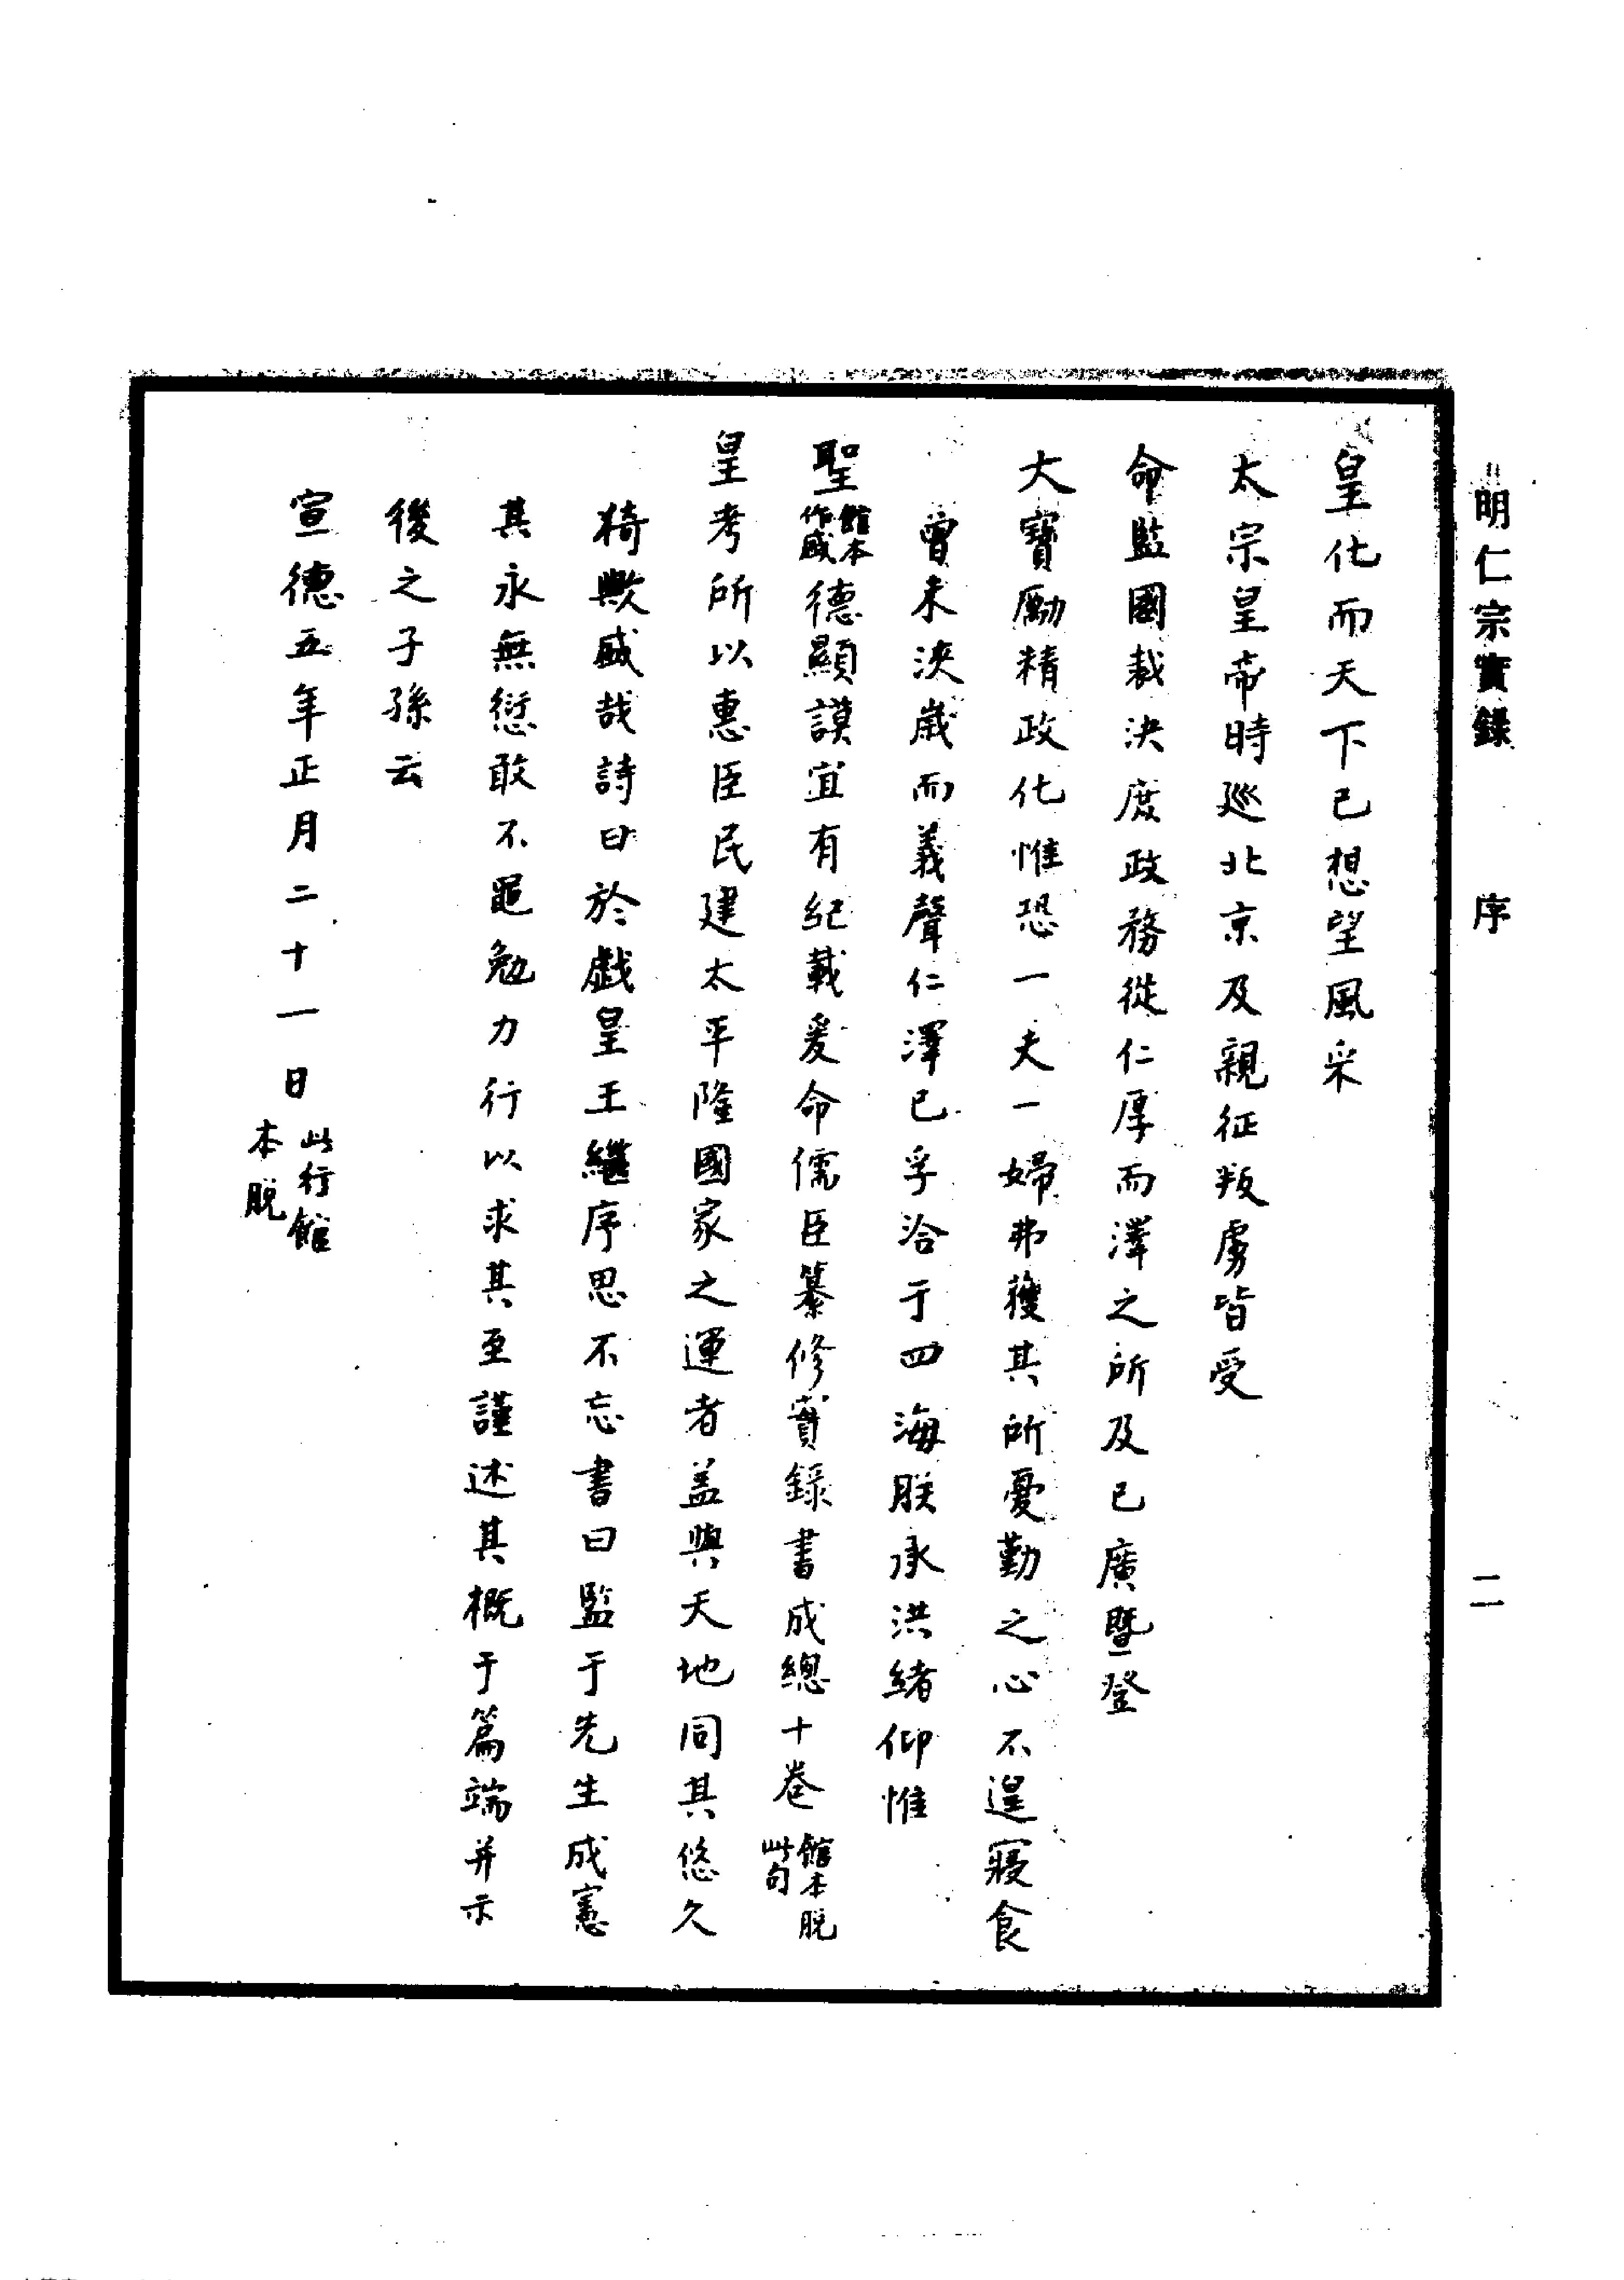 明仁宗實錄 序 二
皇化而天下已想望風采
太宗皇帝時巡北京及親征叛虜皆受
命監國裁決庶政務從仁厚而澤之所及已廣暨登
大寶勵精政化惟恐一夫一婦弗獲其所憂勤之心不遑寢食
曾未浹歲而義聲仁澤已孚洽于四海朕承洪緒仰惟
聖館本作盛德顯謨宜有紀載爰命儒臣纂修實錄書成總十卷館本脫此句
皇考所以惠臣民建太平隆國家之運者盖與天地同其悠久
猗歟盛哉詩曰於戲皇王繼序思不忘書曰監于先生成憲
其永無愆敢不黽勉力行以求其至謹述其概于篇端并示
後之子孫云
宣德五年正月二十一日此行館本脫